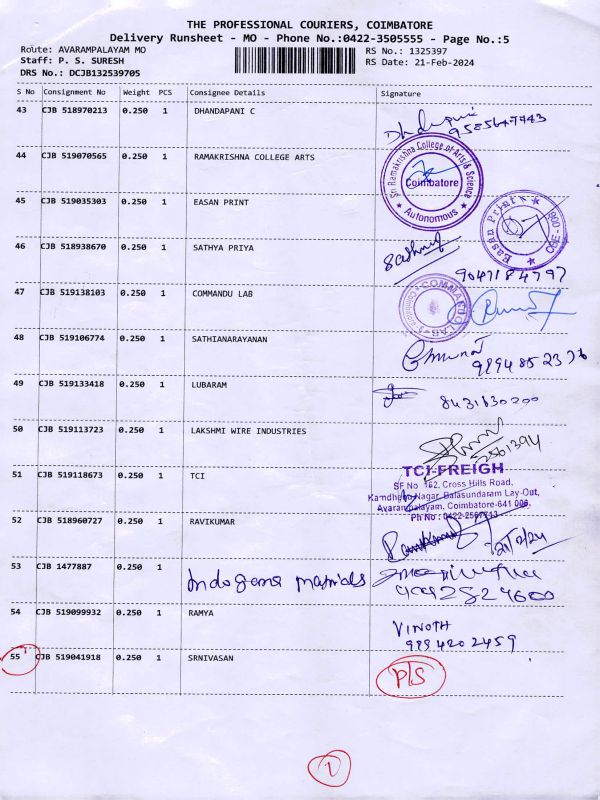 THE PROFESSIONAL COURIERS, COIMBATORE
Delivery Runsheet - MO - Phone No.:0422-3505555 - Page No.:5
Route: AVARAMPALAYAM MO
RS No.: 1325397
Staff: P. S. SURESH
RS Date: 21-Feb-2024
DRS No.: DCJB132539705
S No Consignment No Weight PCS Consignee Details Signature
43 CJB 518970213 0.250 1 DHANDAPANI C
9585647443
44 CJB 519070565 0.250 1 RAMAKRISHNA COLLEGE ARTS
Sri Ramakrishna College of Arts & Science
Coimbatore
★ Autonomous ★
45 CJB 519035303 0.250 1 EASAN PRINT
46 CJB 518938670 0.250 1 SATHYA PRIYA
9047184797
47 CJB 519138103 0.250 1 COMMANDU LAB
48 CJB 519106774 0.250 1 SATHIANARAYANAN
9894852376
49 CJB 519133418 0.250 1 LUBARAM
8431630200
50 CJB 519113723 0.250 1 LAKSHMI WIRE INDUSTRIES
2561394
51 CJB 519118673 0.250 1 TCI
TCI-FREIGH
SF No 162, Cross Hills Road,
Nagar, Balasundaram Lay-Out,
Avarampalayam, Coimbatore-641 006.
Ph No : 0422-2567713
52 CJB 518960727 0.250 1 RAVIKUMAR
21/2/24
53 CJB 1477887 0.250 1 Indogema materials
54 CJB 519099932 0.250 1 RAMYA
VINOTH
9894202459
55 CJB 519041918 0.250 1 SRNIVASAN
P/S
1